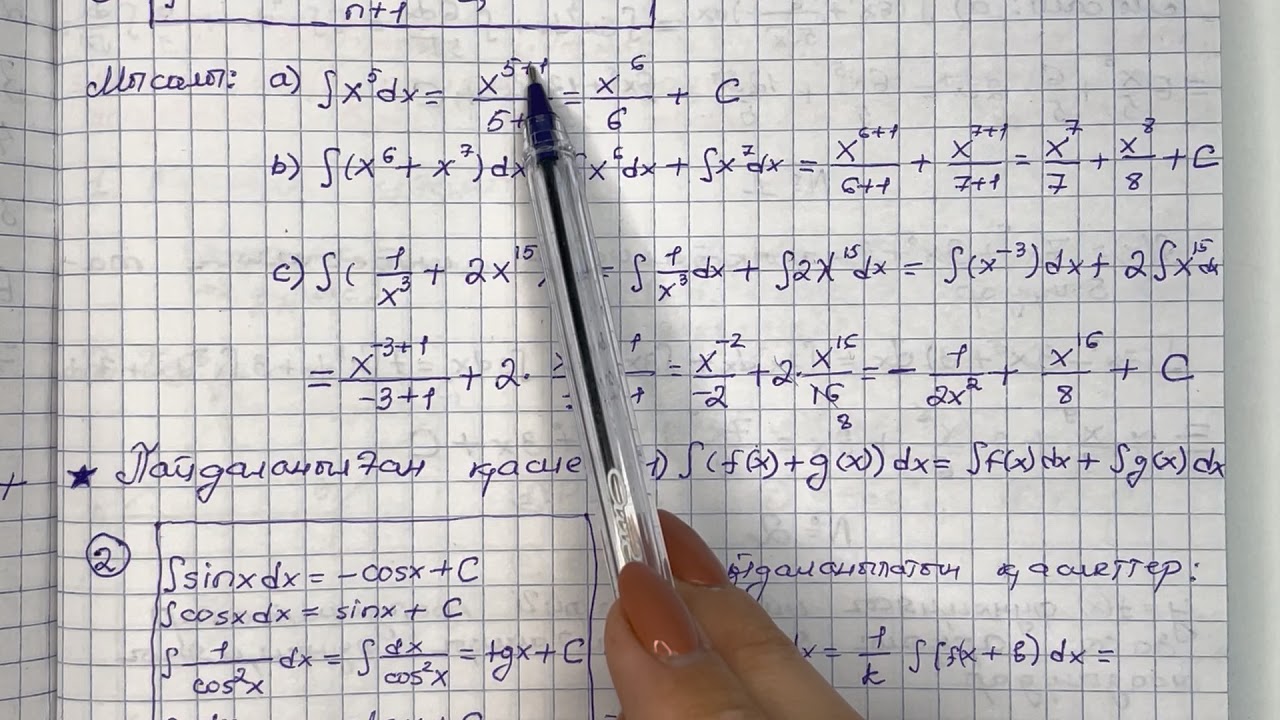 n+1
Мысалы: a) ∫x⁵dx = x⁵⁺¹/5+ = x⁶/6 + C
b) ∫(x⁶ + x⁷)dx x⁶dx + ∫x⁷dx = x⁶⁺¹/6+1 + x⁷⁺¹/7+1 = x⁷/7 + x⁸/8 + C
c) ∫(1/x³ + 2x¹⁵ = ∫1/x³ dx + ∫2x¹⁵dx = ∫(x⁻³)dx + 2∫x¹⁵dx
= x⁻³⁺¹/-3+1 + 2· = x⁻²/-2 + 2·x¹⁶/16 = - 1/2x² + x¹⁶/8 + C
8
★ Пайдаланылған қасие 1) ∫(f(x)+g(x))dx = ∫f(x)dx + ∫g(x)dx
2
∫sinxdx = -cosx + C
∫cosxdx = sinx + C
∫1/cos²x dx = ∫dx/cos²x = tgx + C
йдаланылатын қасиеттер:
dx = 1/k ∫f(kx + b)dx =